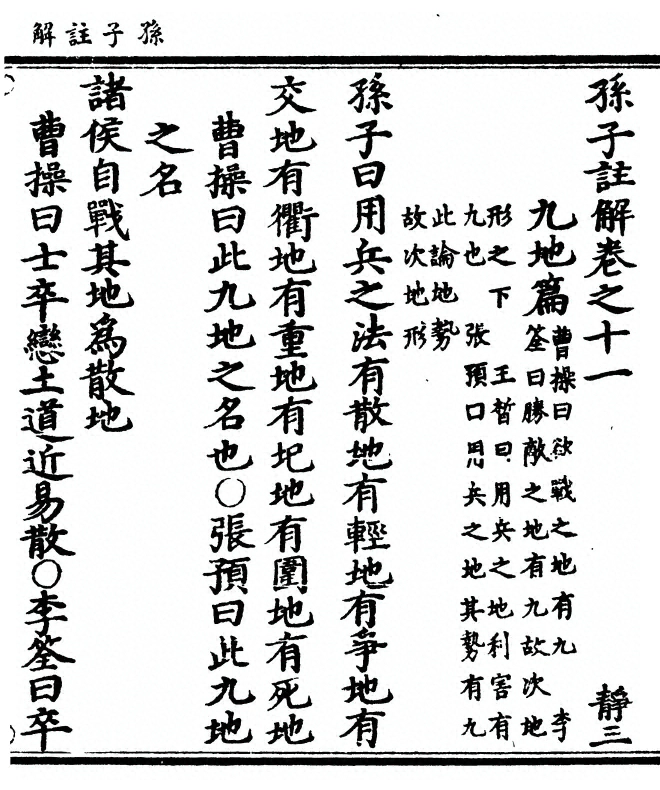 孫子註解
孫子註解卷之十一
靜三
九地篇
曹操曰欲戰之地有九 李
筌曰勝敵之地有九故次地
形之下 王晳曰用兵之地利害有
九也 張預曰用兵之地其勢有九
此論地勢
故次地形
孫子曰用兵之法有散地有輕地有爭地有
交地有衢地有重地有圮地有圍地有死地
曹操曰此九地之名也○張預曰此九地
之名
諸侯自戰其地爲散地
曹操曰士卒戀土道近易散○李筌曰卒